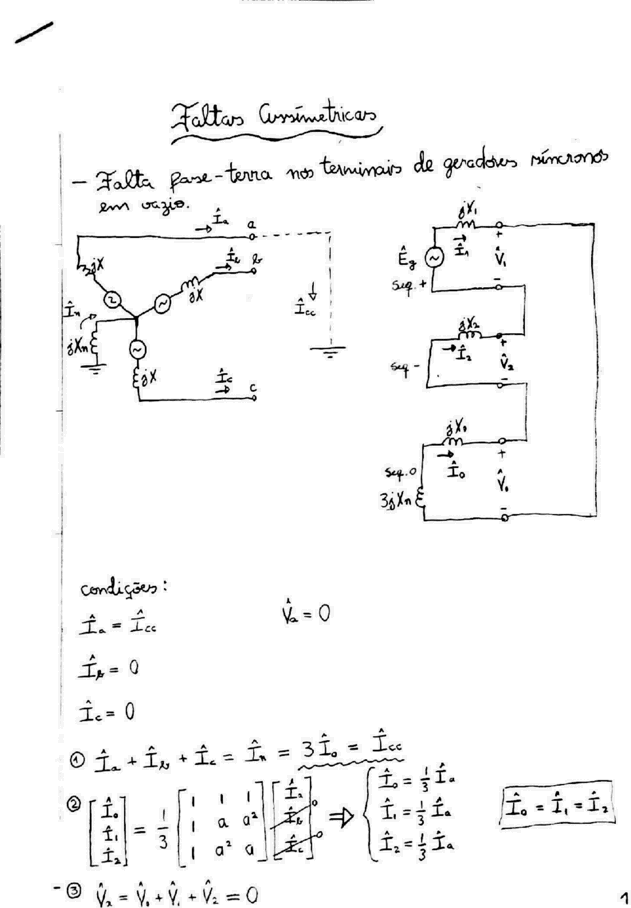 Faltas Assimétricas
- Falta fase-terra nos terminais de geradores síncronos
em vazio.
Îa a
jX
Îb b
jX
În
jXn
Îcc
jX
Îc c
jX1
Êg Î1 + V̂1 -
seq. +
jX2
seq - Î2 + V̂2 -
jX0
seq. 0 Î0 + V̂0 -
3jXn
condições:
Îa = Îcc V̂a = 0
Îb = 0
Îc = 0
① Îa + Îb + Îc = În = 3Î0 = Îcc
② [Î0 Î1 Î2] = 1/3 [1 1 1; 1 a a²; 1 a² a] [Îa Îb Îc] ⇒ { Î0 = 1/3 Îa
Î1 = 1/3 Îa
Î2 = 1/3 Îa
Î0 = Î1 = Î2
- ③ V̂a = V̂0 + V̂1 + V̂2 = 0
1